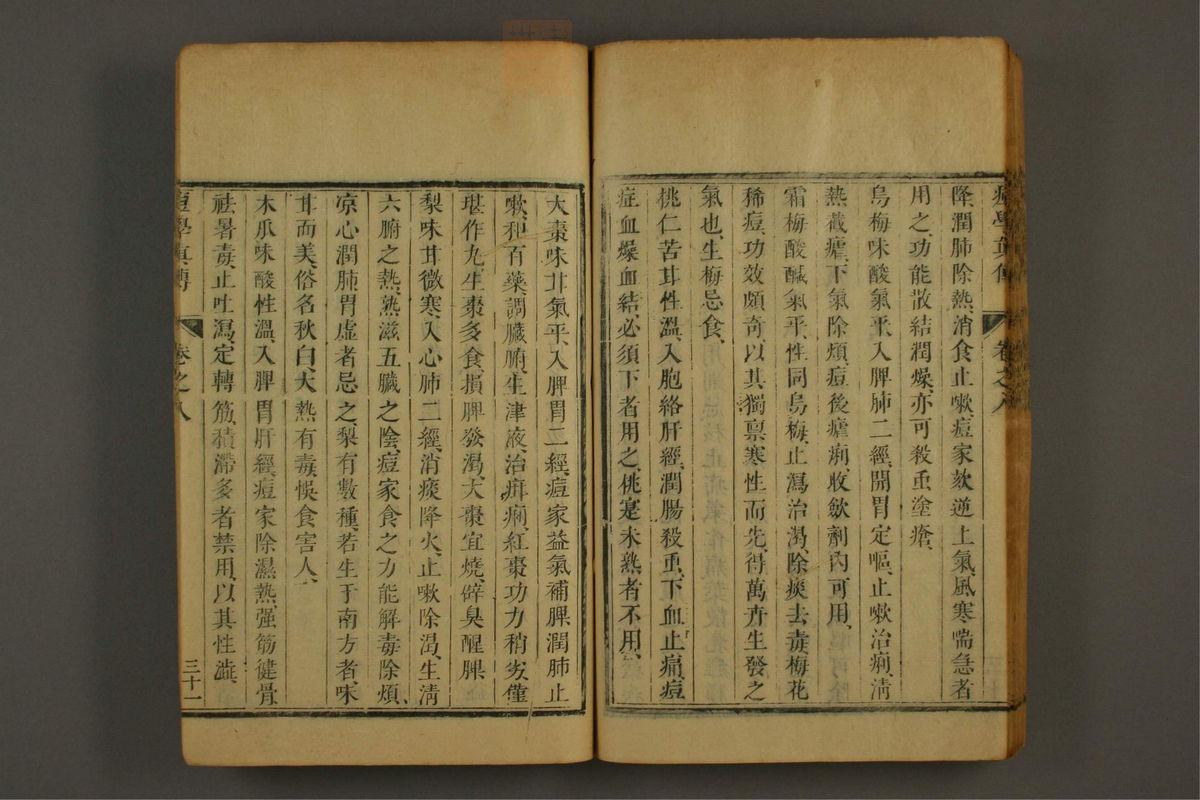 痘學真傳 卷之八
降潤肺除熱消食止嗽痘家欬逆上氣風寒喘急者
用之功能散結潤燥亦可殺虫塗瘡
烏梅味酸氣平入脾肺二經開胃定嘔止嗽治痢淸
熱截瘧下氣除煩痘後瘧痢收斂劑內可用
霜梅酸鹹氣平性同烏梅止瀉治渴除痰去毒梅花
稀痘功效頗奇以其獨禀寒性而先得萬卉生發之
氣也生梅忌食
桃仁苦甘性溫入胞絡肝經潤腸殺虫下血止痛痘
症血燥血結必須下者用之桃寔未熟者不用
大棗味甘氣平入脾胃二經痘家益氣補脾潤肺止
嗽和百藥調臟腑生津液治痺痢紅棗功力稍劣僅
堪作九生棗多食損脾發渴大棗宜燒辟臭醒脾
梨味甘微寒入心肺二經消痰降火止嗽除渴生淸
六腑之熱熟滋五臟之陰痘家食之力能解毒除煩
凉心潤肺胃虛者忌之梨有數種若生于南方者味
甘而美俗名秋白大熱有毒悞食害人
木瓜味酸性溫入脾胃肝經痘家除濕熱强筋健骨
祛暑毒止吐瀉定轉筋積滯多者禁用以其性澁
痘學真傳 卷之八 三十一